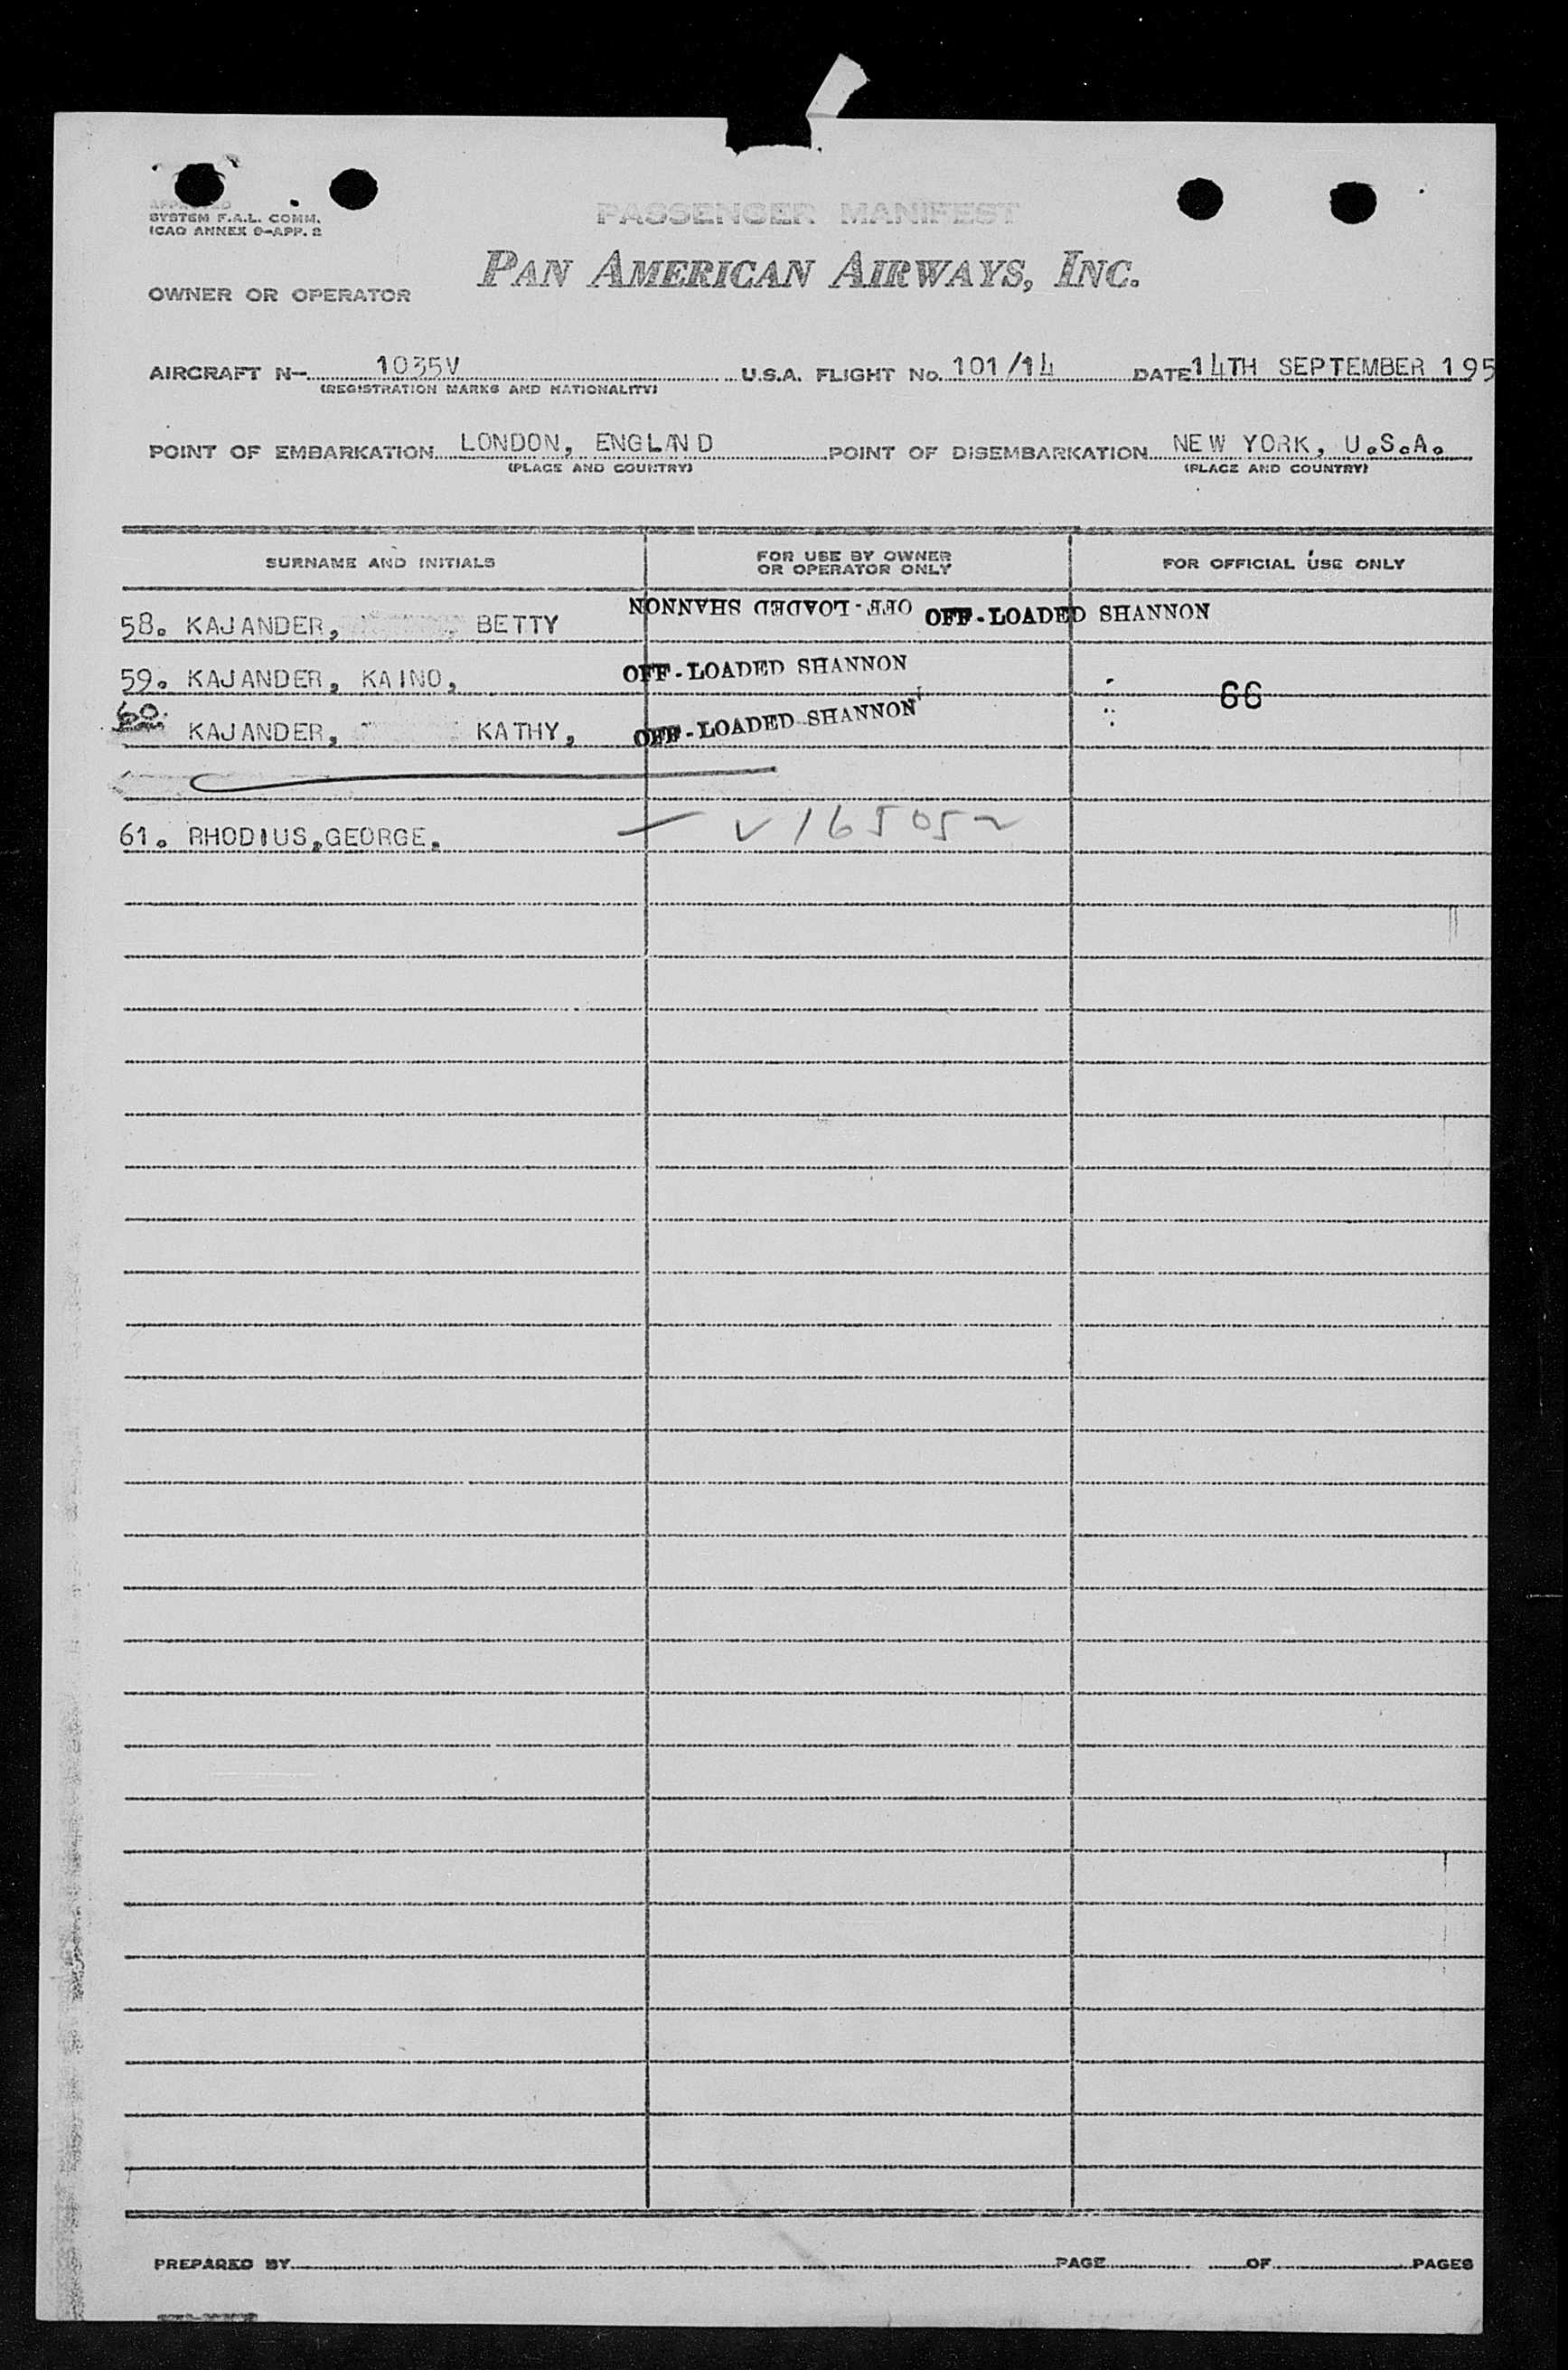 APPROVED
SYSTEM F.A.L. COMM.
ICAO ANNEX 9-APP. 2
PASSENGER MANIFEST
PAN AMERICAN AIRWAYS, INC.
OWNER OR OPERATOR
AIRCRAFT N- 1035V U.S.A. FLIGHT No. 101/14 DATE 14TH SEPTEMBER 195
(REGISTRATION MARKS AND NATIONALITY)
POINT OF EMBARKATION LONDON, ENGLAND POINT OF DISEMBARKATION NEW YORK, U.S.A.
(PLACE AND COUNTRY) (PLACE AND COUNTRY)
SURNAME AND INITIALS FOR USE BY OWNER OR OPERATOR ONLY FOR OFFICIAL USE ONLY
58. KAJANDER, BETTY OFF-LOADED SHANNON OFF-LOADED SHANNON
59. KAJANDER, KAINO, OFF-LOADED SHANNON
66
60. KAJANDER, KATHY, OFF-LOADED SHANNON
61. RHODIUS,GEORGE. V 16505
PREPARED BY PAGE OF PAGES